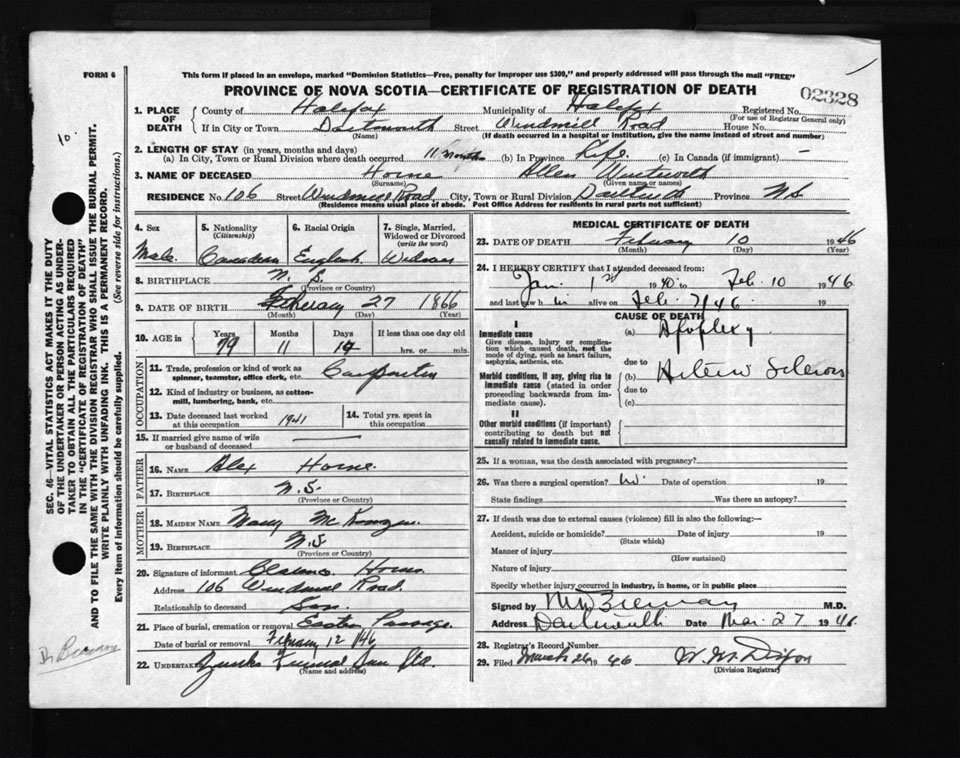 FORM 6
This form if placed in an envelope, marked "Dominion Statistics—Free, penalty for improper use $300," and properly addressed will pass through the mail "FREE"
PROVINCE OF NOVA SCOTIA—CERTIFICATE OF REGISTRATION OF DEATH
02328
1. PLACE OF DEATH
County of Halifax Municipality of Halifax Registered No.
(For use of Registrar General only)
If in City or Town Dartmouth Street Windmill Road House No.
(Name) (If death occurred in a hospital or institution, give the name instead of street and number)
2. LENGTH OF STAY (in years, months and days)
(a) In City, Town or Rural Division where death occurred 11 months (b) In Province Life. (c) In Canada (if immigrant) —
3. NAME OF DECEASED Horne Allen Wentworth
(Surname) (Given name or names)
RESIDENCE No. 106 Street Windmill Road, City, Town or Rural Division Dartmouth Province N.S.
(Residence means usual place of abode. Post Office Address for residents in rural parts not sufficient)
4. Sex 5. Nationality 6. Racial Origin 7. Single, Married, Widowed or Divorced
(Citizenship) (write the word)
Male. Canadian English
8. BIRTHPLACE N. S.
(Province or Country)
9. DATE OF BIRTH February 27 1866
(Month) (Day) (Year)
10. AGE in Years Months Days If less than one day old
79 11 14 hrs. or min.
OCCUPATION
11. Trade, profession or kind of work as spinner, teamster, office clerk, etc. Carpenter
12. Kind of industry or business, as cotton-mill, lumbering, bank, etc.
13. Date deceased last worked at this occupation 1941 14. Total yrs. spent in this occupation
15. If married give name of wife or husband of deceased
FATHER
16. NAME Alex Horne.
17. BIRTHPLACE N.S.
(Province or Country)
MOTHER
18. MAIDEN NAME Mary
19. BIRTHPLACE N.S
(Province or Country)
20. Signature of informant Horne
Address 106 Windmill Road.
Relationship to deceased Son.
21. Place of burial, cremation or removal Eastern Passage.
Date of burial or removal February 12 /46
22. UNDERTAKER Funeral
(Name and address)
MEDICAL CERTIFICATE OF DEATH
23. DATE OF DEATH February 10 1946
(Month) (Day) (Year)
24. I HEREBY CERTIFY that I attended deceased from:
Jan. 1st 1940 to Feb. 10 1946
and last saw h im alive on Feb. 7/46 19
CAUSE OF DEATH
I
Immediate cause (a) Apoplexy
Give disease, injury or complication which caused death, not the mode of dying, such as heart failure, asphyxia, asthenia, etc.
due to
Morbid conditions, if any, giving rise to immediate cause (stated in order proceeding backwards from immediate cause).
(b)
due to
(c)
II
Other morbid conditions (if important) contributing to death but not causally related to immediate cause.
25. If a woman, was the death associated with pregnancy?
26. Was there a surgical operation? Date of operation 19
State findings Was there an autopsy?
27. If death was due to external causes (violence) fill in also the following:—
Accident, suicide or homicide? Date of injury 19
(State which)
Manner of injury
(How sustained)
Nature of injury
Specify whether injury occurred in industry, in home, or in public place
Signed by M.D.
Address Dartmouth Date Mar. 27 1946
28. Registrar's Record Number
29. Filed March 26 1946 Dixon
(Division Registrar)
SEC. 46—VITAL STATISTICS ACT MAKES IT THE DUTY
OF THE UNDERTAKER OR PERSON ACTING AS UNDER-
TAKER TO OBTAIN ALL THE PARTICULARS REQUIRED
IN THE "CERTIFICATE OF REGISTRATION OF DEATH"
AND TO FILE THE SAME WITH THE DIVISION REGISTRAR WHO SHALL ISSUE THE BURIAL PERMIT.
WRITE PLAINLY WITH UNFADING INK. THIS IS A PERMANENT RECORD.
Every item of information should be carefully supplied. (See reverse side for instructions.)
10.